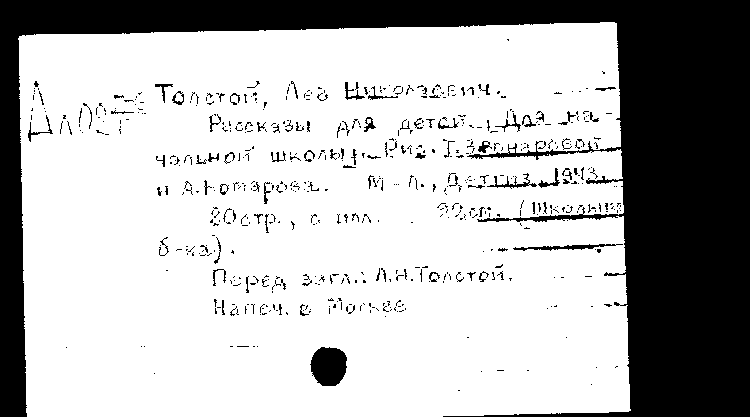 Толстой, Лев Николаевич.
Рассказы для детей. Для на-
чальной школы. Рис. Т. Звонаровой
и А. Комарова. М-Л., Детгиз, 1943.
20 стр., с илл. 22 см. (Школьная
б-ка).
Перед загл.: Л.Н.Толстой.
Напеч. в Москве